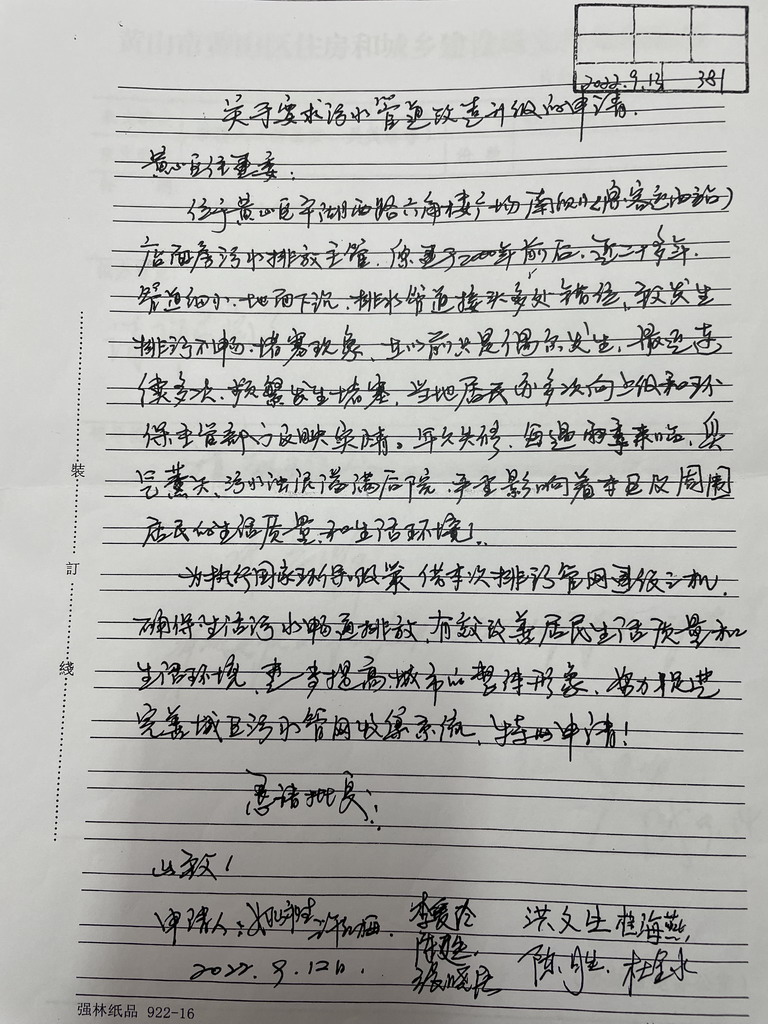 2022.9.13 381
关于要求污水管道改造升级的申请.
黄山区住建委:
位于黄山区平湖西路六角楼广场南侧(原客运西站)
店面房污水排放主管.原建于2000年前后.近二十多年.
管道细小.地面下沉.排水管道接头多处错位,致发生
排污不畅.堵塞现象,且以前只是偶尔发生,最近连
续多次.频繁发生堵塞,当地居民多次向上级和环
保主管部门反映实情。年久失修,每遇雨季来临,臭
气薰天,污水淤泥溢满后院,严重影响着本区及周围
居民的生活质量和生活环境!
为执行国家环保政策借本次排污管网升级之机,
确保生活污水畅通排放,有效改善居民生活质量和
生活环境,更一步提高城市的整体形象,努力促进
完善城区污水管网收集系统,特此申请!
恳请批复!
此致!
申请人: 洪文生 桂海燕
陈胜 杜金水
2022.9.12日.
裝 訂 綫
强林纸品 922-16